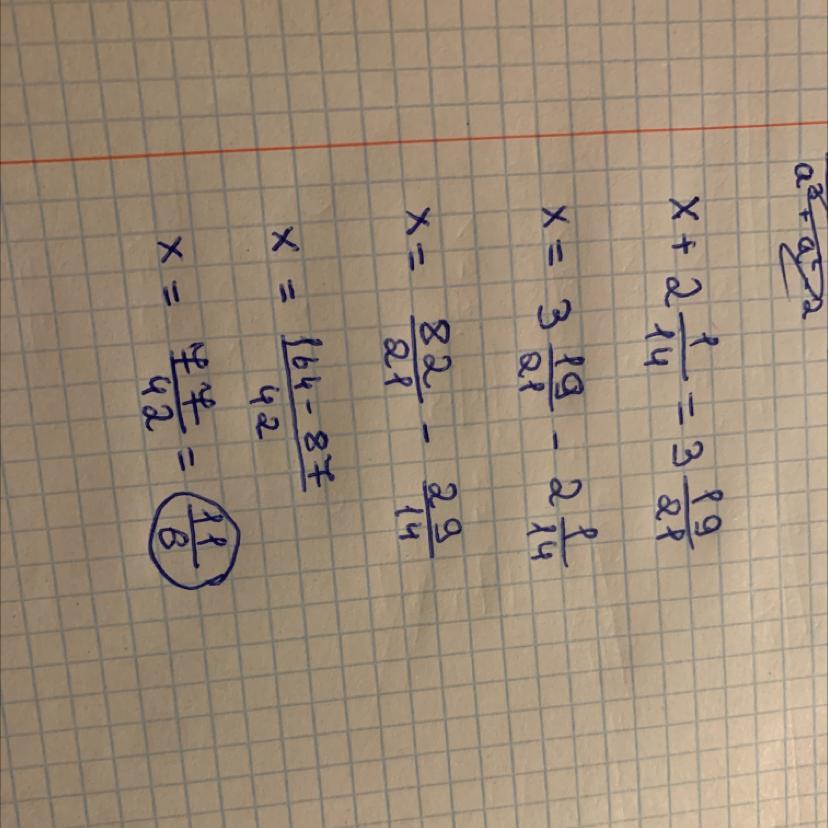 x + 2 1/14 = 3 19/21
x = 3 19/21 - 2 1/14
x = 82/21 - 29/14
x = (164 - 87)/42
x = 77/42 = 11/6